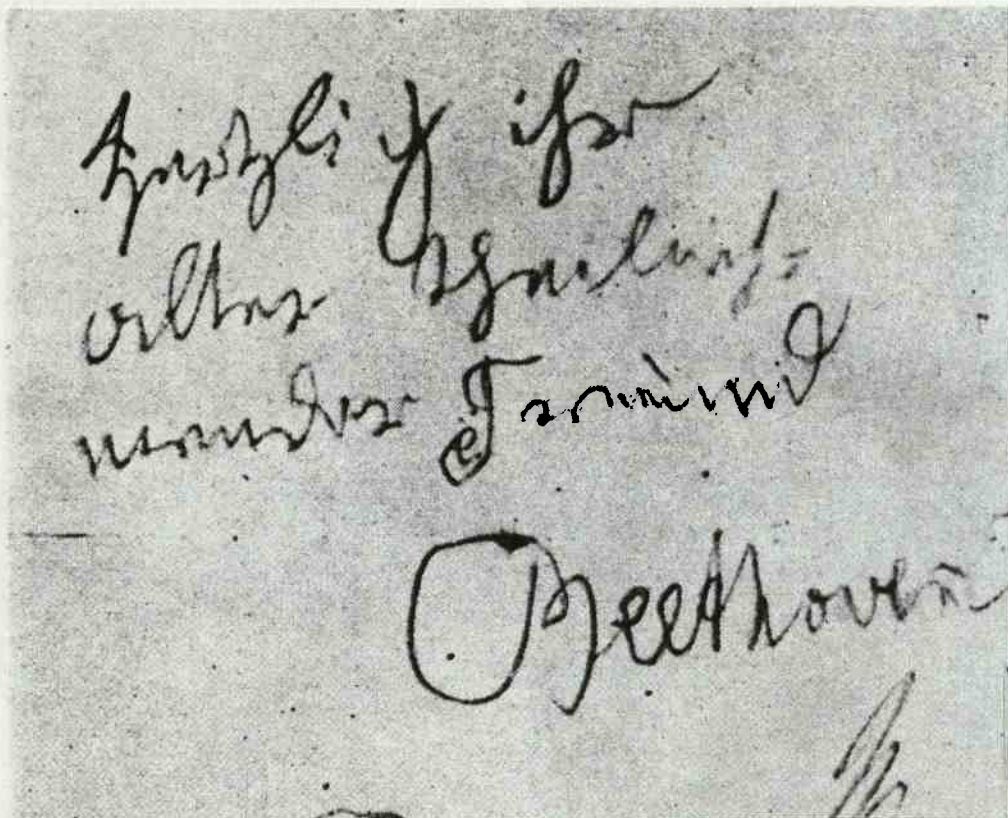 Herzlich ihr
alter theilneh-
mender Freund
Beethowen